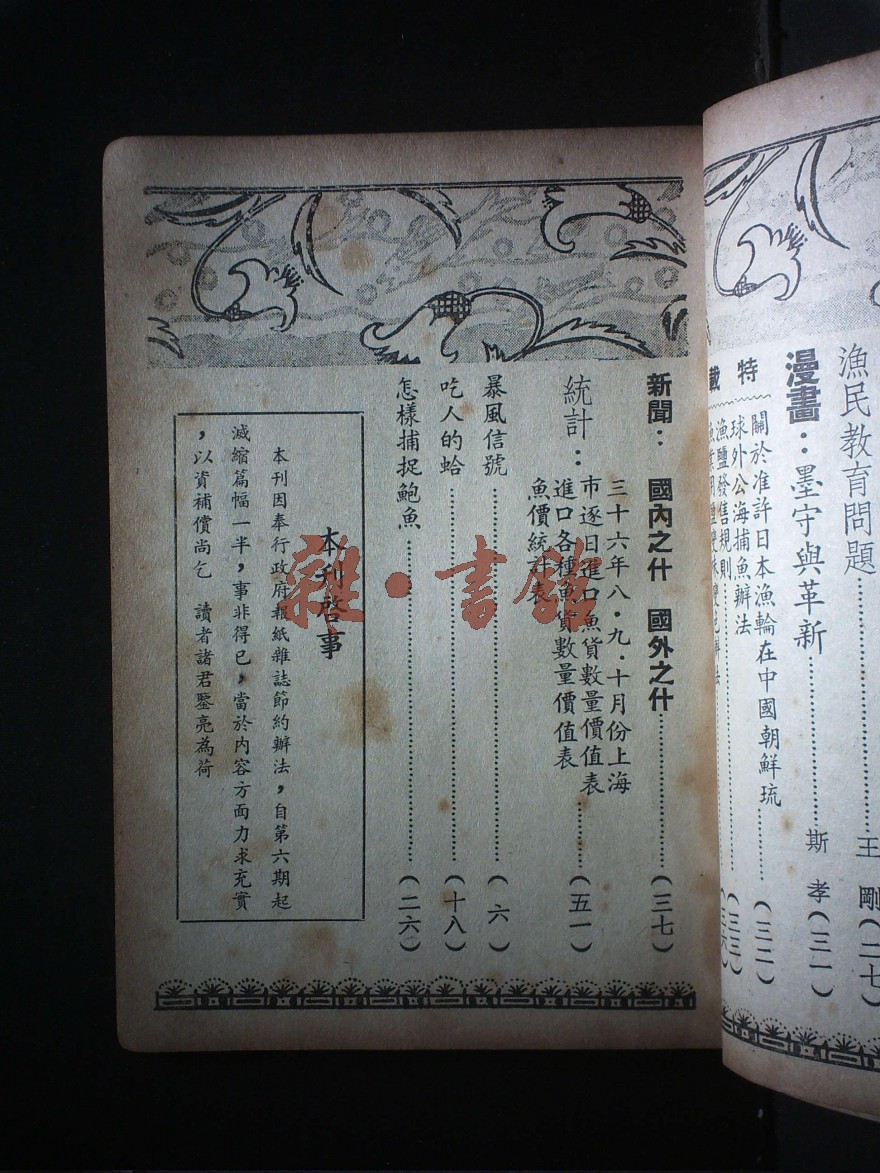 漁民教育問題………王　剛(二七)
漫畫：墨守與革新………斯　孝(三一)
特載
關於准許日本漁輪在中國朝鮮琉
球外公海捕魚辦法………(三二)
漁鹽發售規則………(三三)
新聞：　國內之什　國外之什………(三七)
統計：
三十六年八・九・十月份上海
市逐日進口魚貨數量價值表
進口各種魚貨數量價值表………(五一)
魚價統計表
暴風信號………(六)
吃人的蛤………(十八)
怎樣捕捉鮑魚………(二六)
本刊啓事
本刊因奉行政府報紙雜誌節約辦法，自第六期起
減縮篇幅一半，事非得已，當於內容方面力求充實
，以資補償尚乞　讀者諸君鑒亮為荷
雜・書館